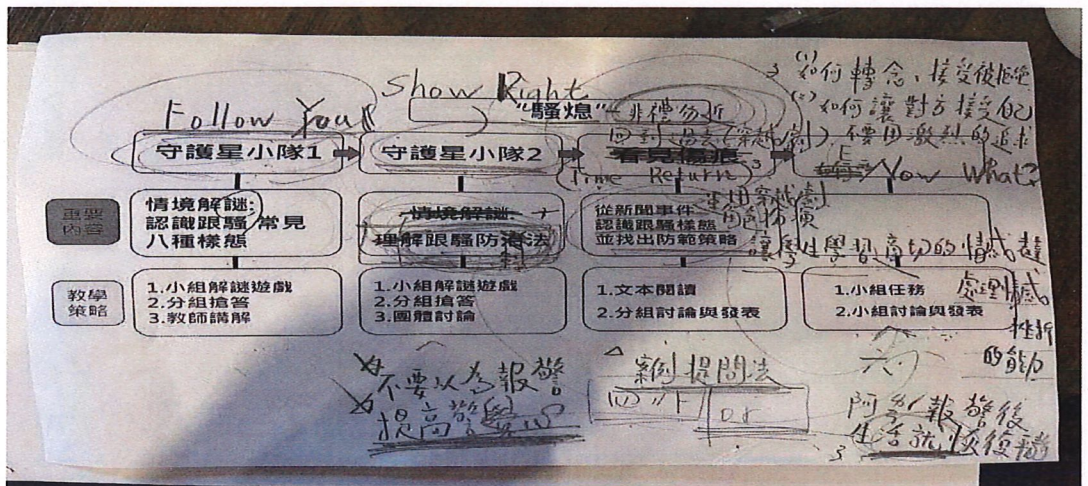 Show Right
Follow You
"騷熄"－非禮勿近
(1) 如何轉念、接受被拒絕
(2) 如何讓對方接受自己
不要用激烈的追求
回到過去(穿越劇)
守護星小隊1
守護星小隊2
看見傷痕
(Time Return)
You What?
重要
內容
情境解謎:
認識跟騷 常見
八種樣態
情境解謎:
理解跟騷防治法
從新聞事件
認識跟騷樣態
並找出防範策略
運用穿越劇
角色扮演
讓學生學習
的情感表達
處理情感
挫折
的能力
教學
策略
1.小組解謎遊戲
2.分組搶答
3.教師講解
1.小組解謎遊戲
2.分組搶答
3.團體討論
1.文本閱讀
2.分組討論與發表
1.小組任務
2.小組討論與發表
不要以為報警
提高警覺
案例提問法
or
報警後
生活就恢復